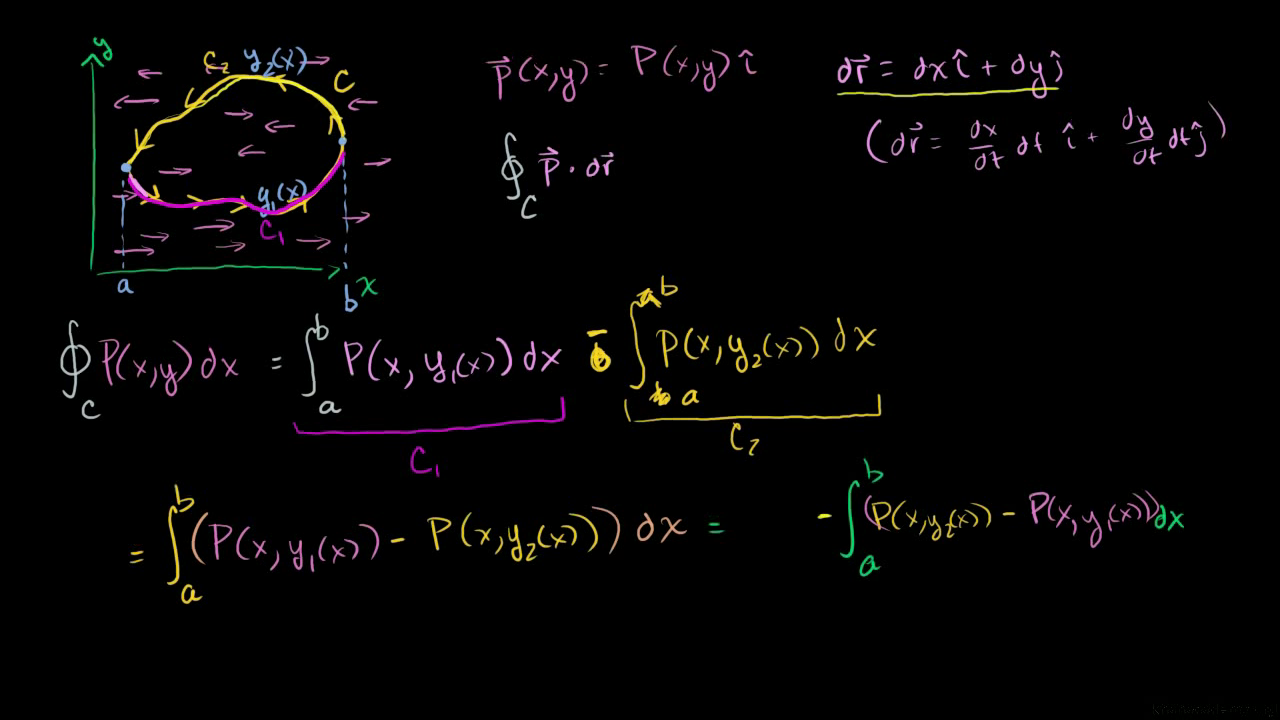 y
C₂ y₂(x)
C
y₁(x)
C₁
a
b x
P⃗(x,y) = P(x,y) î
dr⃗ = dx î + dy ĵ
∮_C P⃗ · dr⃗
(dr⃗ = dx/dt dt î + dy/dt dt ĵ)
∮_C P(x,y) dx = ∫_a^b P(x, y₁(x)) dx - ∫_a^b P(x, y₂(x)) dx
C₁
C₂
= ∫_a^b (P(x, y₁(x)) - P(x, y₂(x))) dx = - ∫_a^b (P(x, y₂(x)) - P(x, y₁(x))) dx